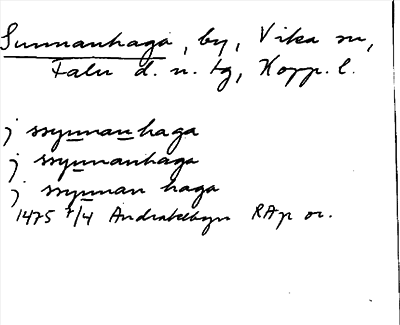 Sunnanhaga, by, Vika sn,
Falu d. n. tg, Kopp. l.
j ssynnan haga
j ssynnanhaga
j ssynnan haga
1475 7/4 RAp or.